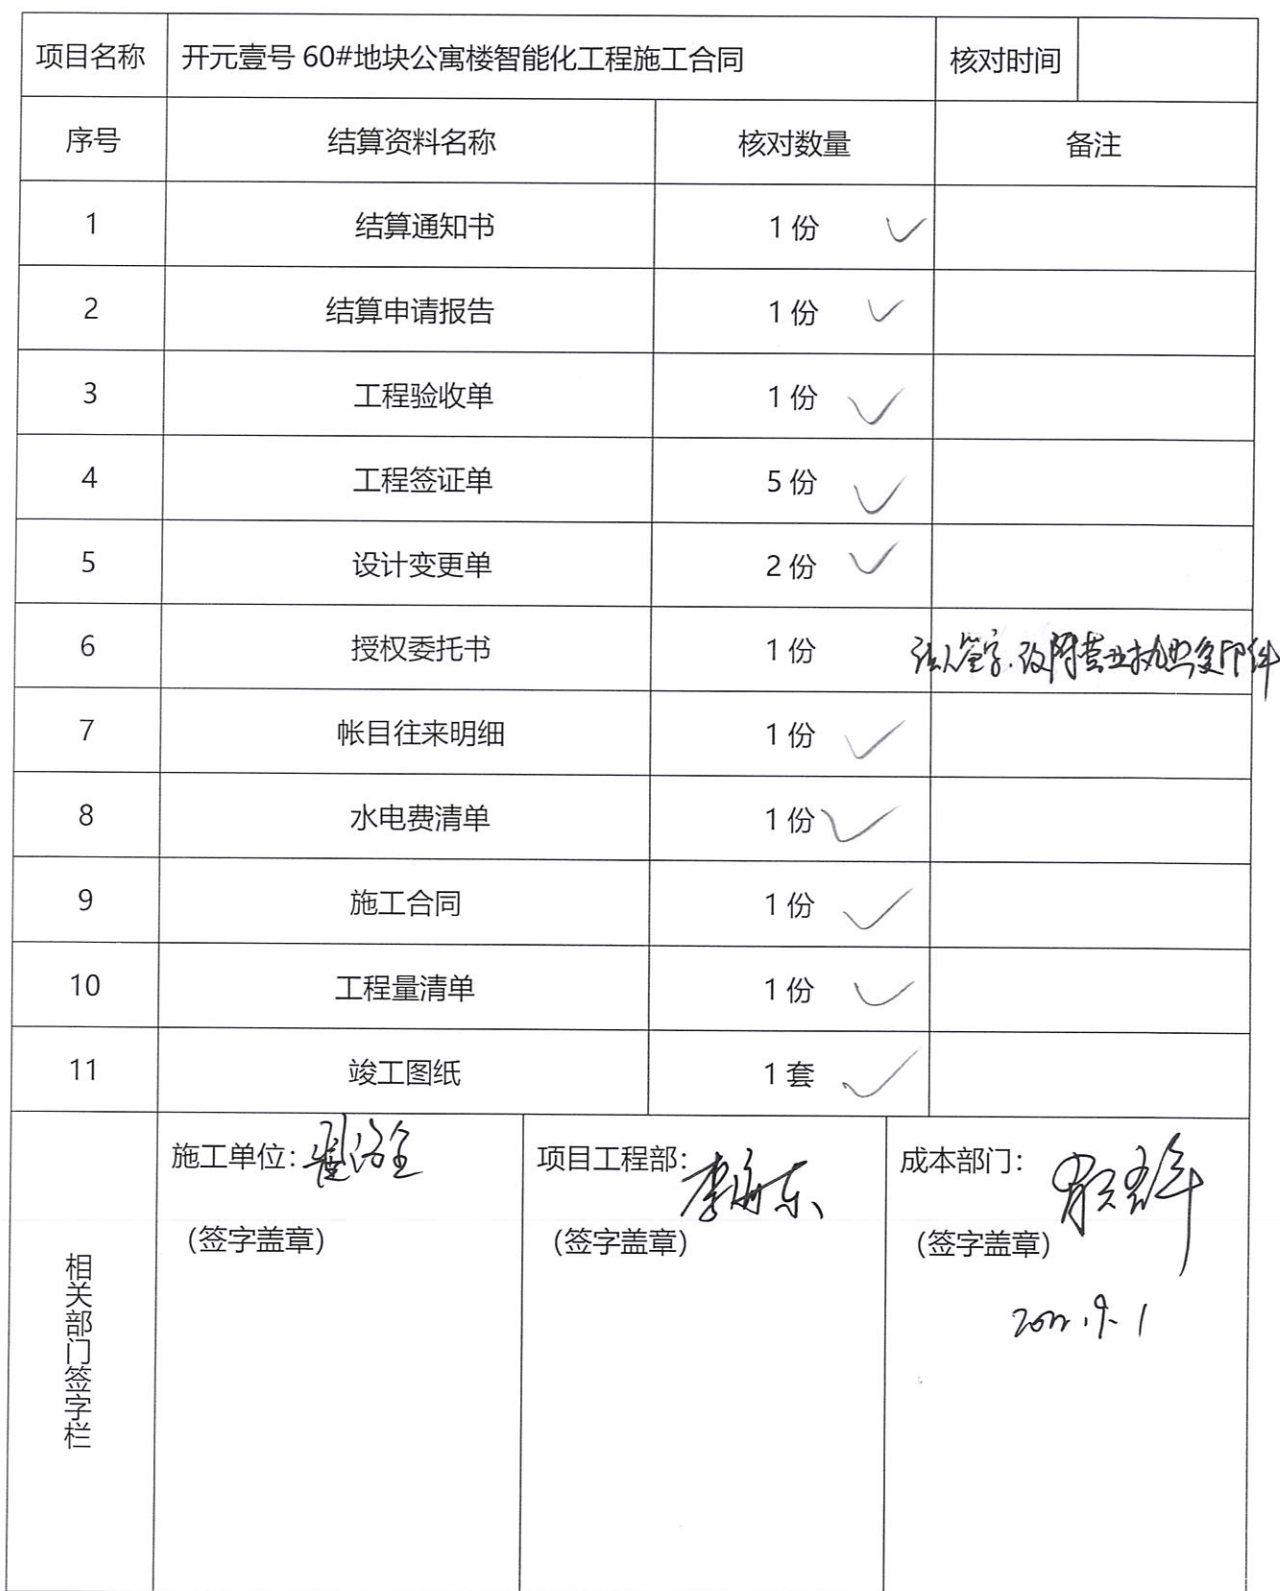 项目名称 开元壹号 60#地块公寓楼智能化工程施工合同 核对时间
序号 结算资料名称 核对数量 备注
1 结算通知书 1 份 ✓
2 结算申请报告 1 份 ✓
3 工程验收单 1 份 ✓
4 工程签证单 5 份 ✓
5 设计变更单 2 份 ✓
6 授权委托书 1 份 法人签字.改附营业执照复印件
7 帐目往来明细 1 份 ✓
8 水电费清单 1 份 ✓
9 施工合同 1 份 ✓
10 工程量清单 1 份 ✓
11 竣工图纸 1 套 ✓
相关部门签字栏
施工单位: 项目工程部: 李海东 成本部门:
(签字盖章) (签字盖章) (签字盖章)
2022.9.1